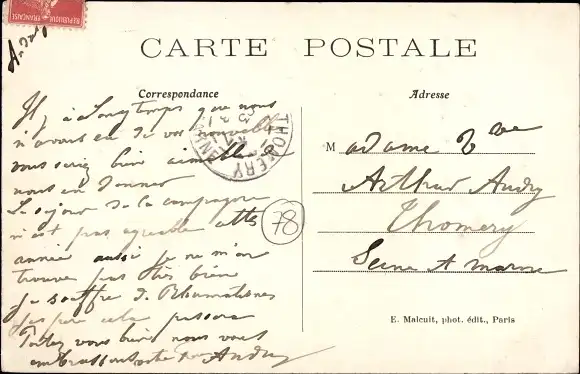 REPUBLIQUE FRANÇAISE
Andry
CARTE POSTALE
Correspondance
Il y a Longtemps que nous
n'avons eu de vos nouvelles
vous seriez bien aimable
nous en donner
Le sejour de la campagne
n'est pas agreable cette
année aussi je ne m'en
trouve pas très bien
Je souffre de Rhumatismes
J'espere cela passera
Portez vous bien nous vous
embrassons votre Andry
THOMERY
78
Adresse
Madame Vve
Arthur Andry
Thomery
Seine et Marne
E. Malcuit, phot. édit., Paris